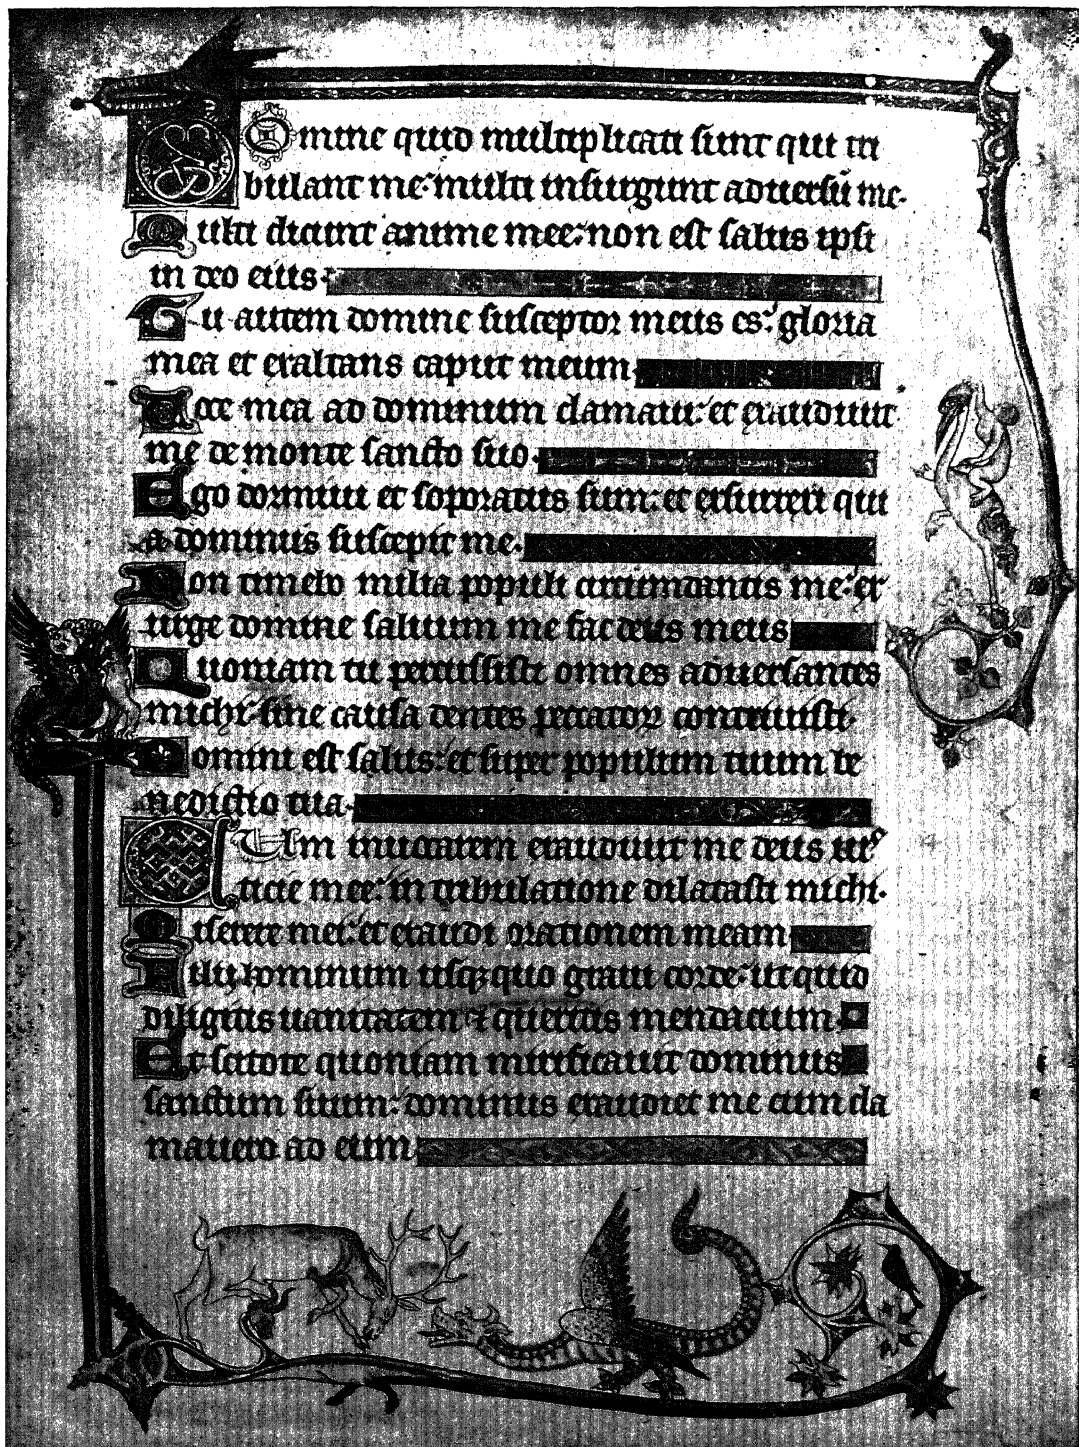 Domine quid multiplicati sunt qui tri
bulant me: multi insurgunt adversũ me.
Multi dicunt anime mee: non est salus ipsi
in deo eius.
Tu autem domine susceptor meus es: gloria
mea et exaltans caput meum.
Voce mea ad dominum clamavi: et exaudivit
me de monte sancto suo.
Ego dormivi et soporatus sum: et exsurrexi qui
a dominus suscepit me.
Non timebo milia populi circumdantis me: ex
urge domine salvum me fac deus meus
Quoniam tu percussisti omnes adversantes
michi sine causa dentes peccatoꝝ contrivisti.
Domini est salus: et super populum tuum be
nedictio tua.
Cum invocarem exaudivit me deus ius
ticie mee: in tribulatione dilatasti michi.
Miserere mei: et exaudi orationem meam
Filii hominum usqꝫ quo gravi corde: ut quid
diligitis vanitatem ⁊ queritis mendacium.
Et scitote quoniam mirificavit dominus
sanctum suum: dominus exaudiet me cum cla
mavero ad eum.